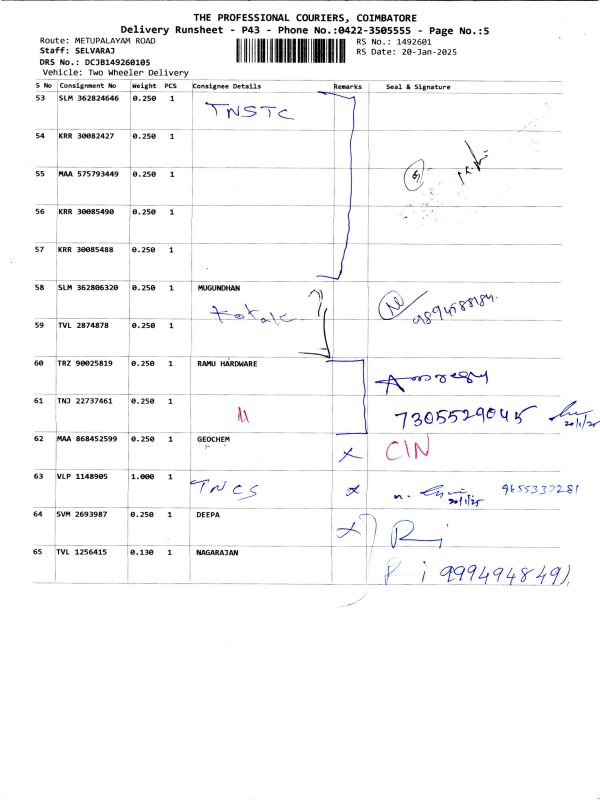 THE PROFESSIONAL COURIERS, COIMBATORE
Delivery Runsheet - P43 - Phone No.:0422-3505555 - Page No.:5
Route: METUPALAYAM ROAD
Staff: SELVARAJ
DRS No.: DCJB149260105
Vehicle: Two Wheeler Delivery
RS No.: 1492601
RS Date: 20-Jan-2025
S No Consignment No Weight PCS Consignee Details Remarks Seal & Signature
53 SLM 362824646 0.250 1 TNSTC
54 KRR 30082427 0.250 1
55 MAA 575793449 0.250 1
56 KRR 30085490 0.250 1
57 KRR 30085488 0.250 1
58 SLM 362806320 0.250 1 MUGUNDHAN
kotak
59 TVL 2874878 0.250 1
60 TRZ 90025819 0.250 1 RAMU HARDWARE
61 TNJ 22737461 0.250 1 7305529045 20/1/25
62 MAA 868452599 0.250 1 GEOCHEM CIN
63 VLP 1148905 1.000 1 TNCS 20/1/25 9655337281
64 SVM 2693987 0.250 1 DEEPA
65 TVL 1256415 0.130 1 NAGARAJAN 9994948491